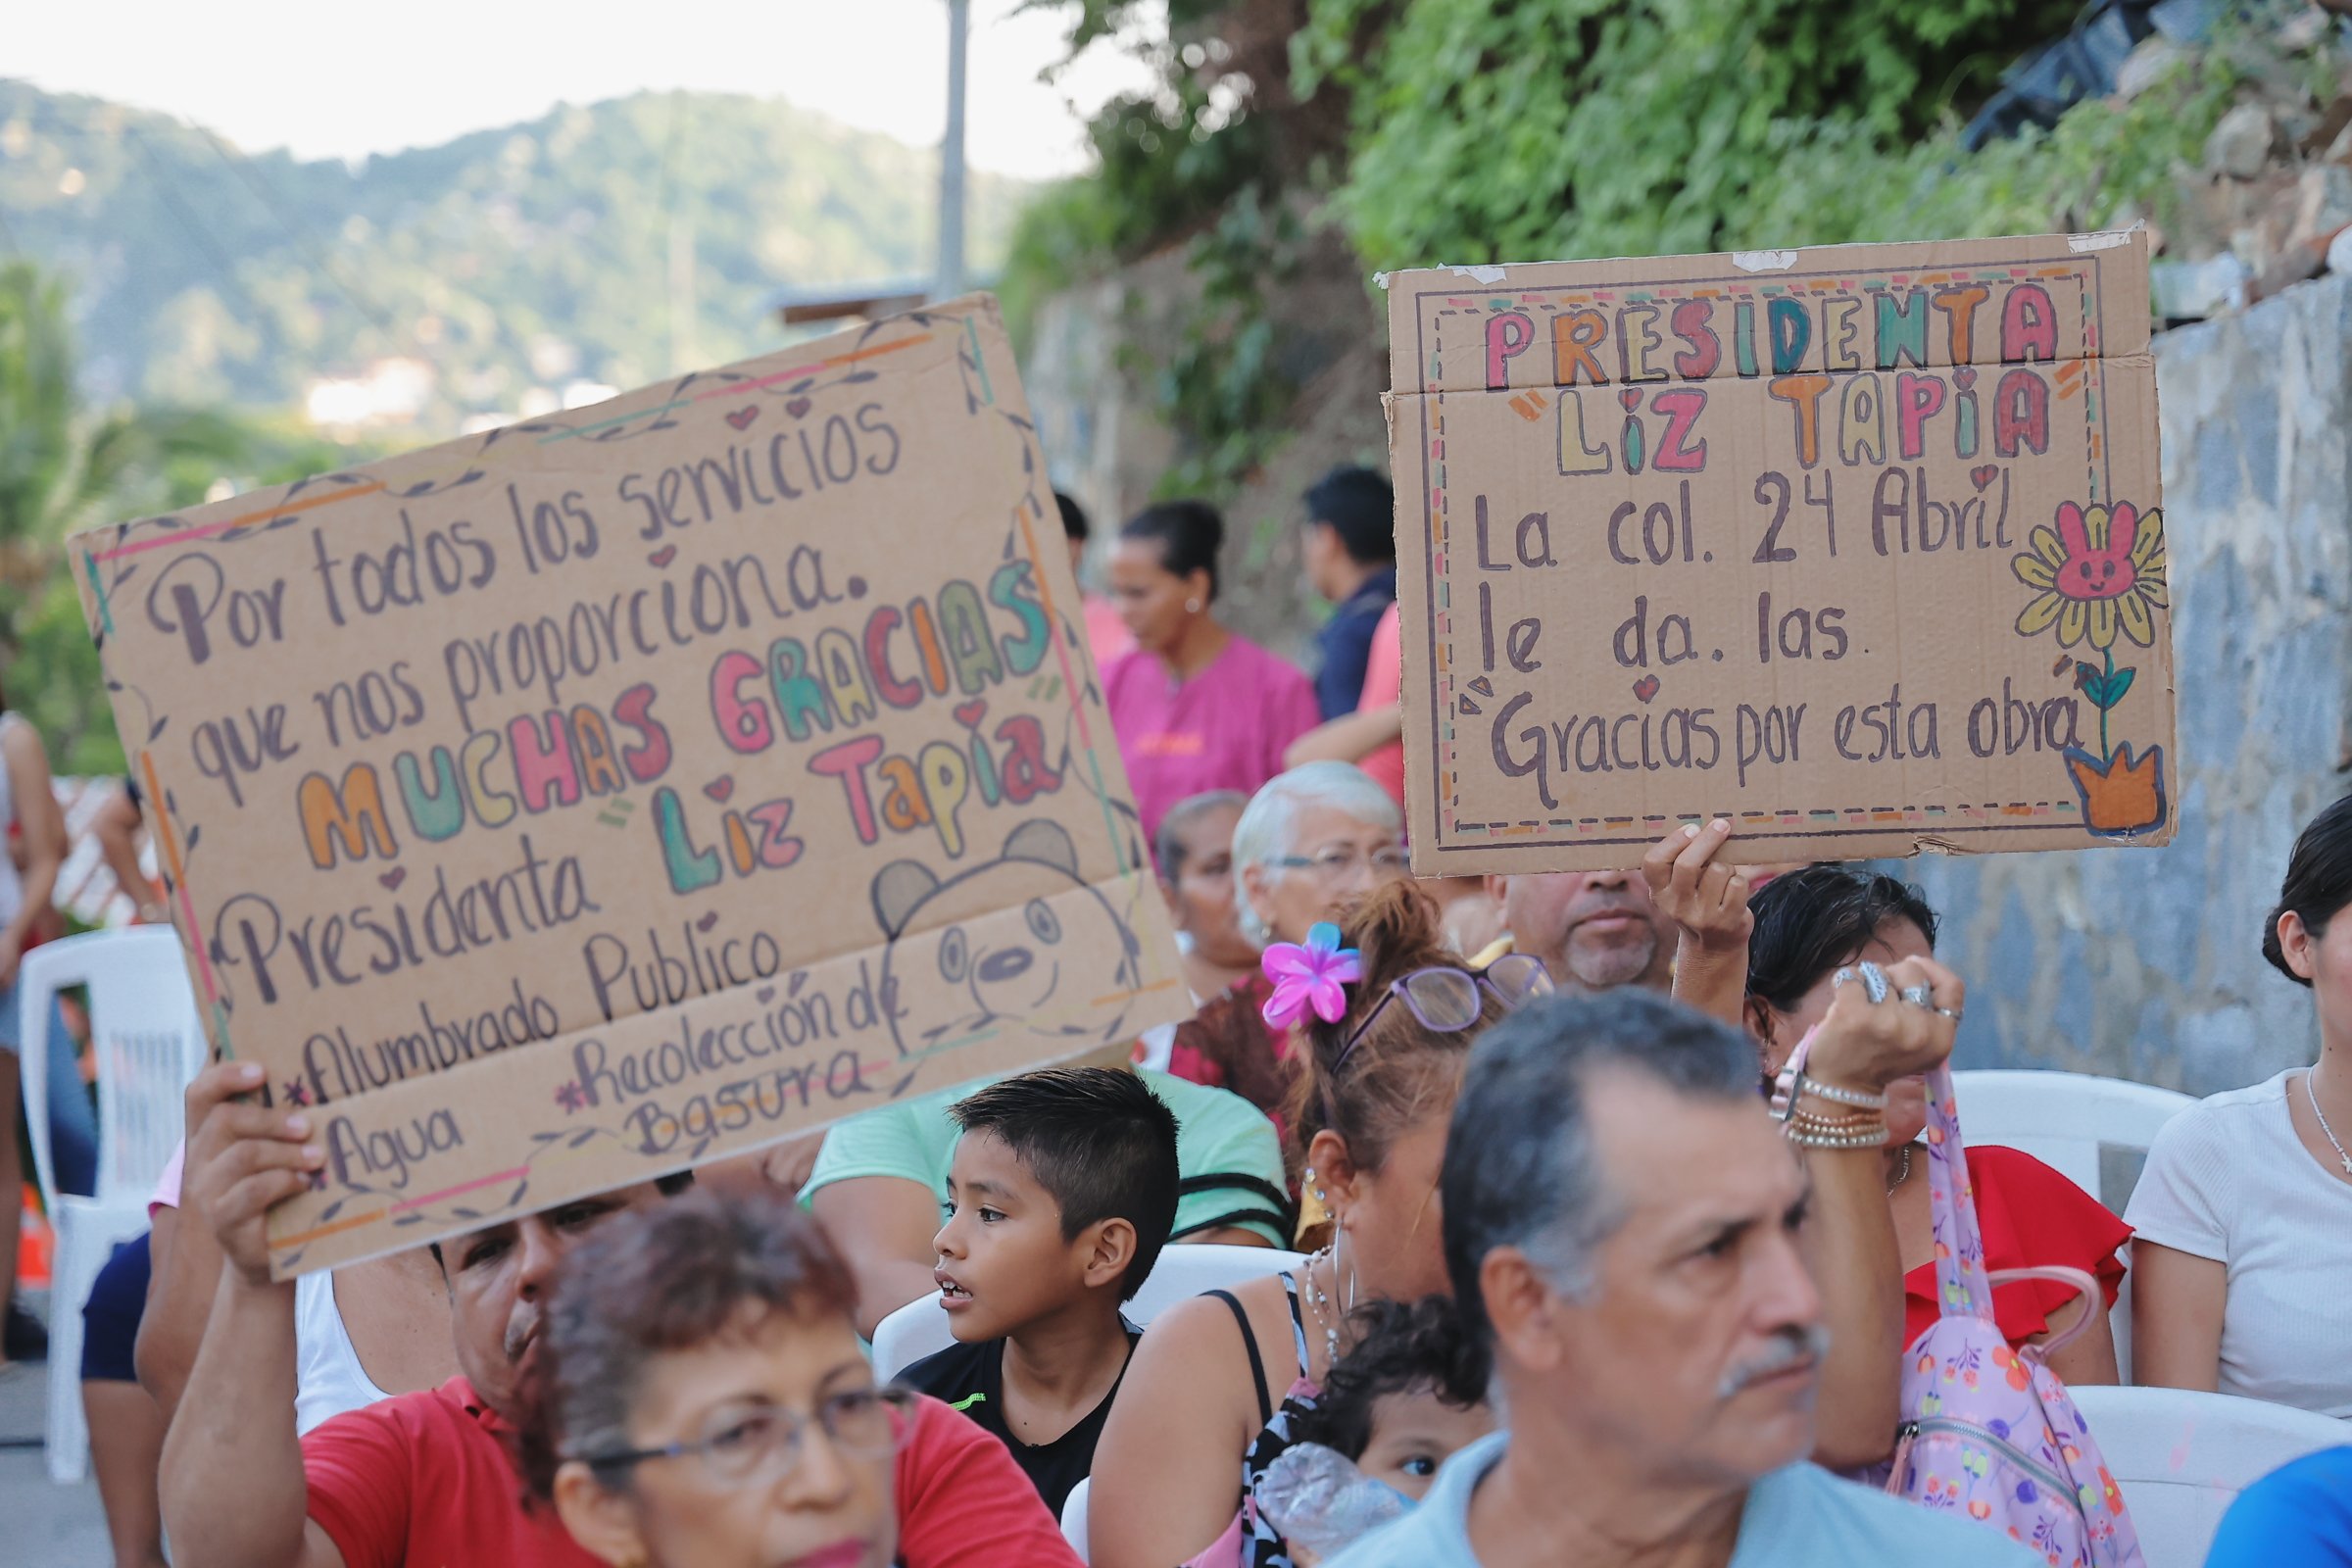 Por todos los servicios
que nos proporciona.
MUCHAS GRACIAS
Presidenta "Liz Tapia"
*Alumbrado Publico
*Agua *Recolección de
Basura
PRESIDENTA
"LiZ TAPiA"
La col. 24 Abril
le da. las.
"Gracias por esta obra"